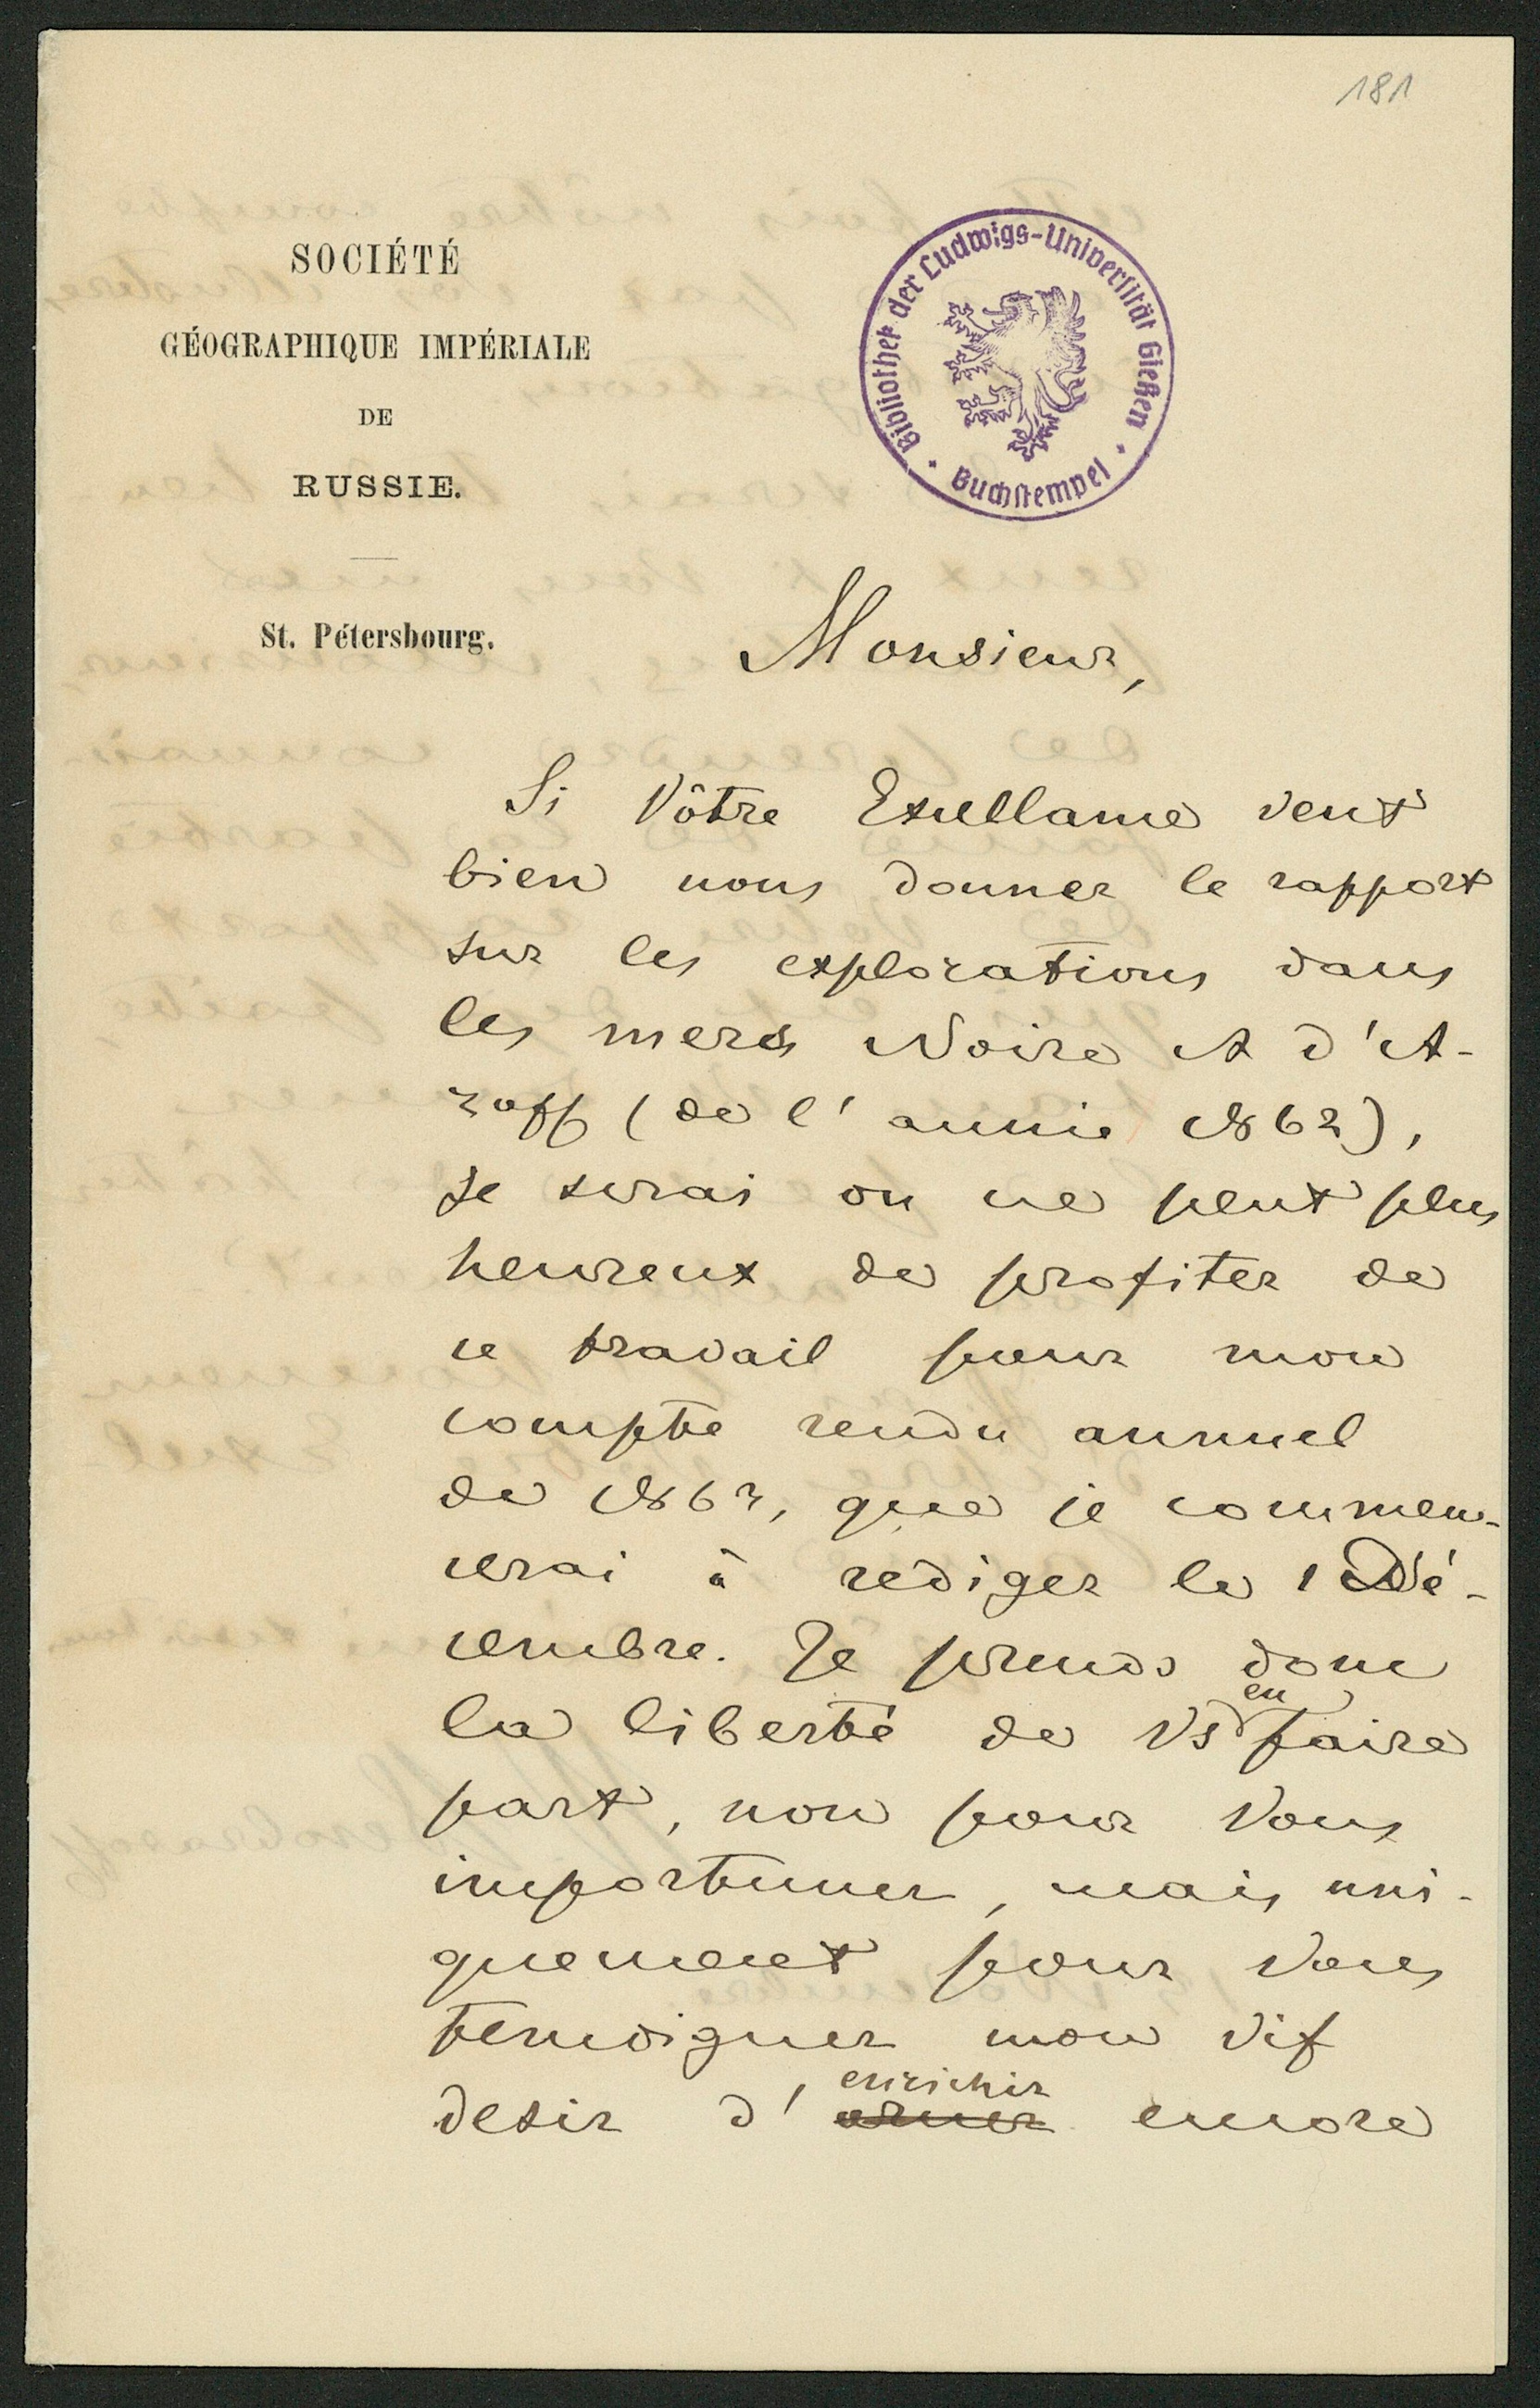 181
SOCIÉTÉ
GÉOGRAPHIQUE IMPÉRIALE
DE
RUSSIE.
St. Pétersbourg.
Bibliothek der Ludwigs-Universität Gießen
Buchstempel
Monsieur,
Si Vôtre Exellance veut
bien nous donner le rapport
sur les explorations dans
les mers Noire et d'A-
zoff (de l'année 1862),
je serai on ne peut plus
heureux de profiter de
ce travail pour mon
compte rendu annuel
de 1862, que je commen-
cerai à rediger le 1 Dé-
cembre. Je prends donc
la liberté de Vs en faire
part, non pour Vous
importuner, mais uni-
quement pour Vous
temoigner mon vif
desir d'enrichir encore